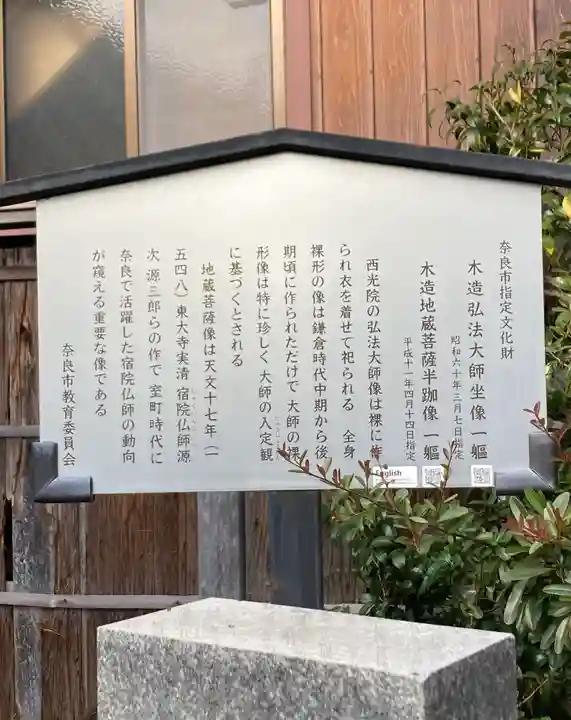 奈良市指定文化財
木造弘法大師坐像 一軀
昭和六十年三月七日指定
木造地蔵菩薩半跏像 一軀
平成十一年四月十四日指定
西光院の弘法大師像は裸に作
られ衣を着せて祀られる 全身
裸形の像は鎌倉時代中期から後
期頃に作られただけで 大師の裸
形像は特に珍しく 大師の入定観
に基づくとされる
地蔵菩薩像は天文十七年(一
五四八)東大寺実清 宿院仏師源
次 源三郎らの作で 室町時代に
奈良で活躍した宿院仏師の動向
が窺える重要な像である
奈良市教育委員会
English